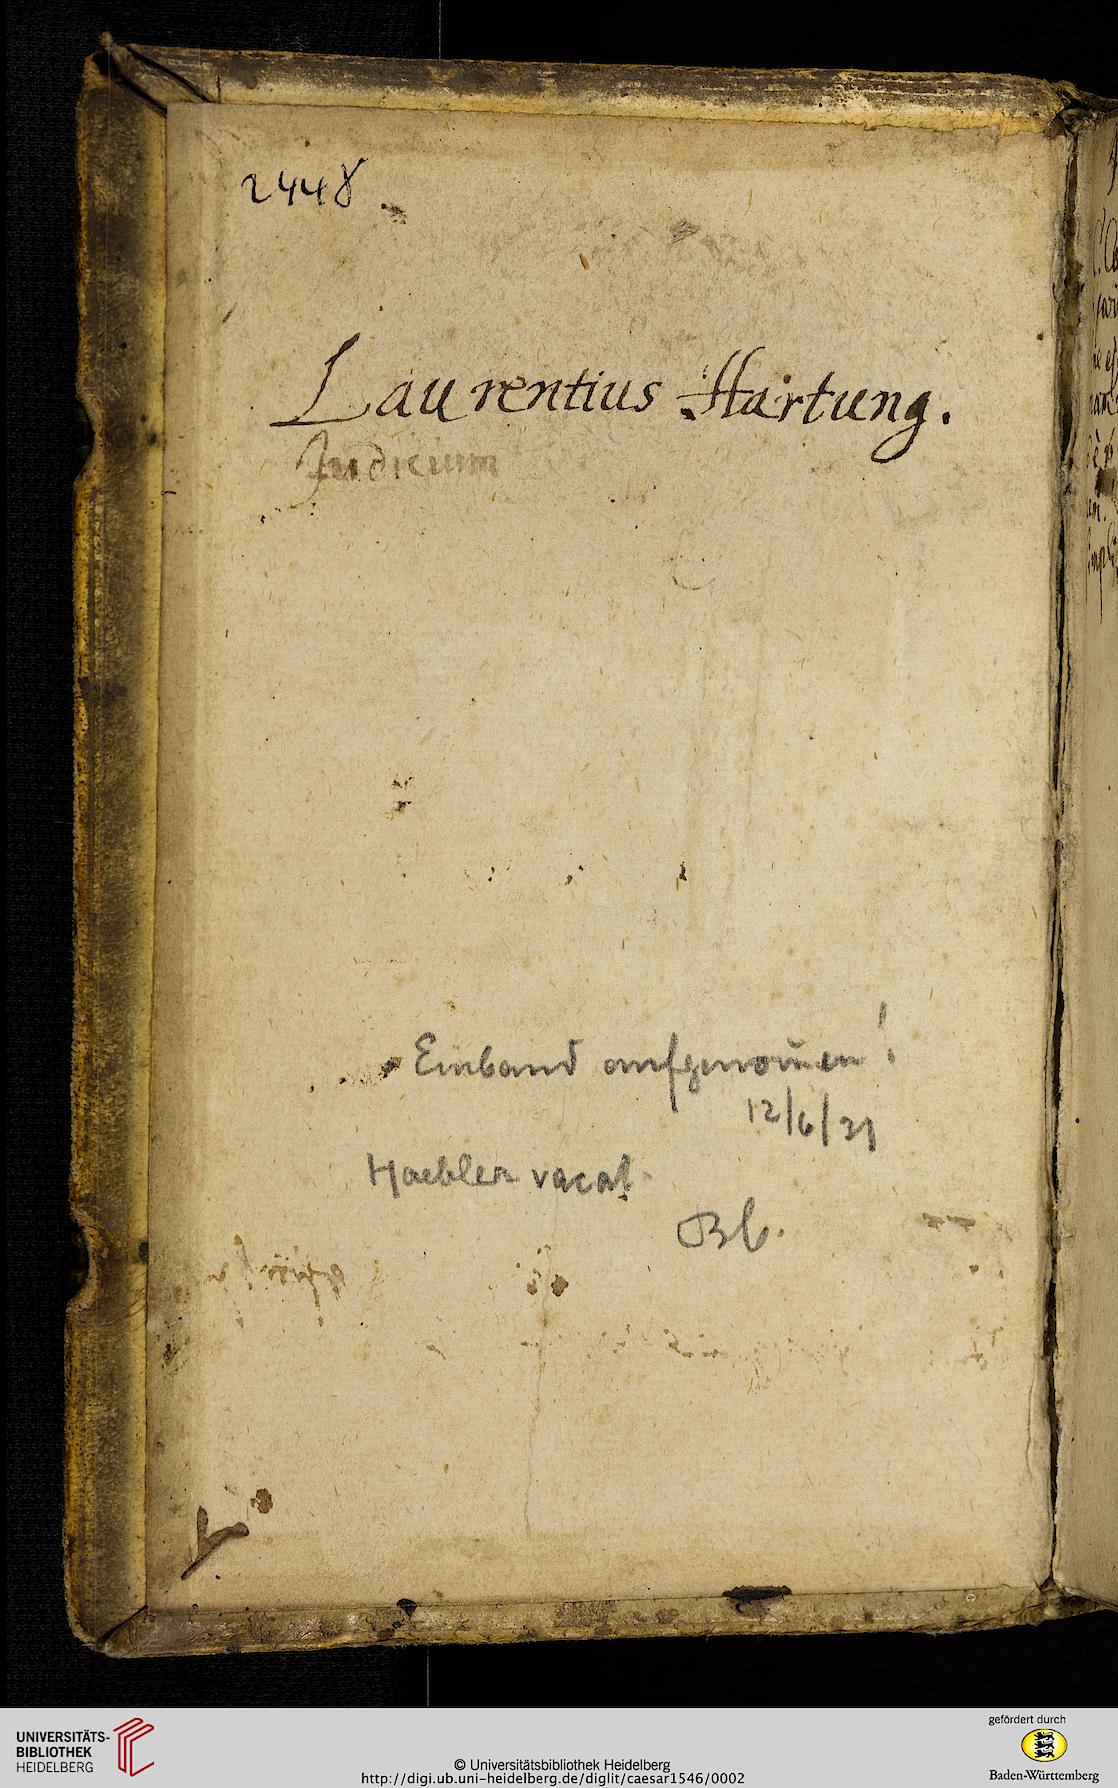 2448
Laurentius Hartung.
Judicium
Einband aufgenom̄en!
12/6/31
Haebler vacat.
Bb.
UNIVERSITÄTS-
BIBLIOTHEK
HEIDELBERG
© Universitätsbibliothek Heidelberg
http://digi.ub.uni-heidelberg.de/diglit/caesar1546/0002
gefördert durch
Baden-Württemberg